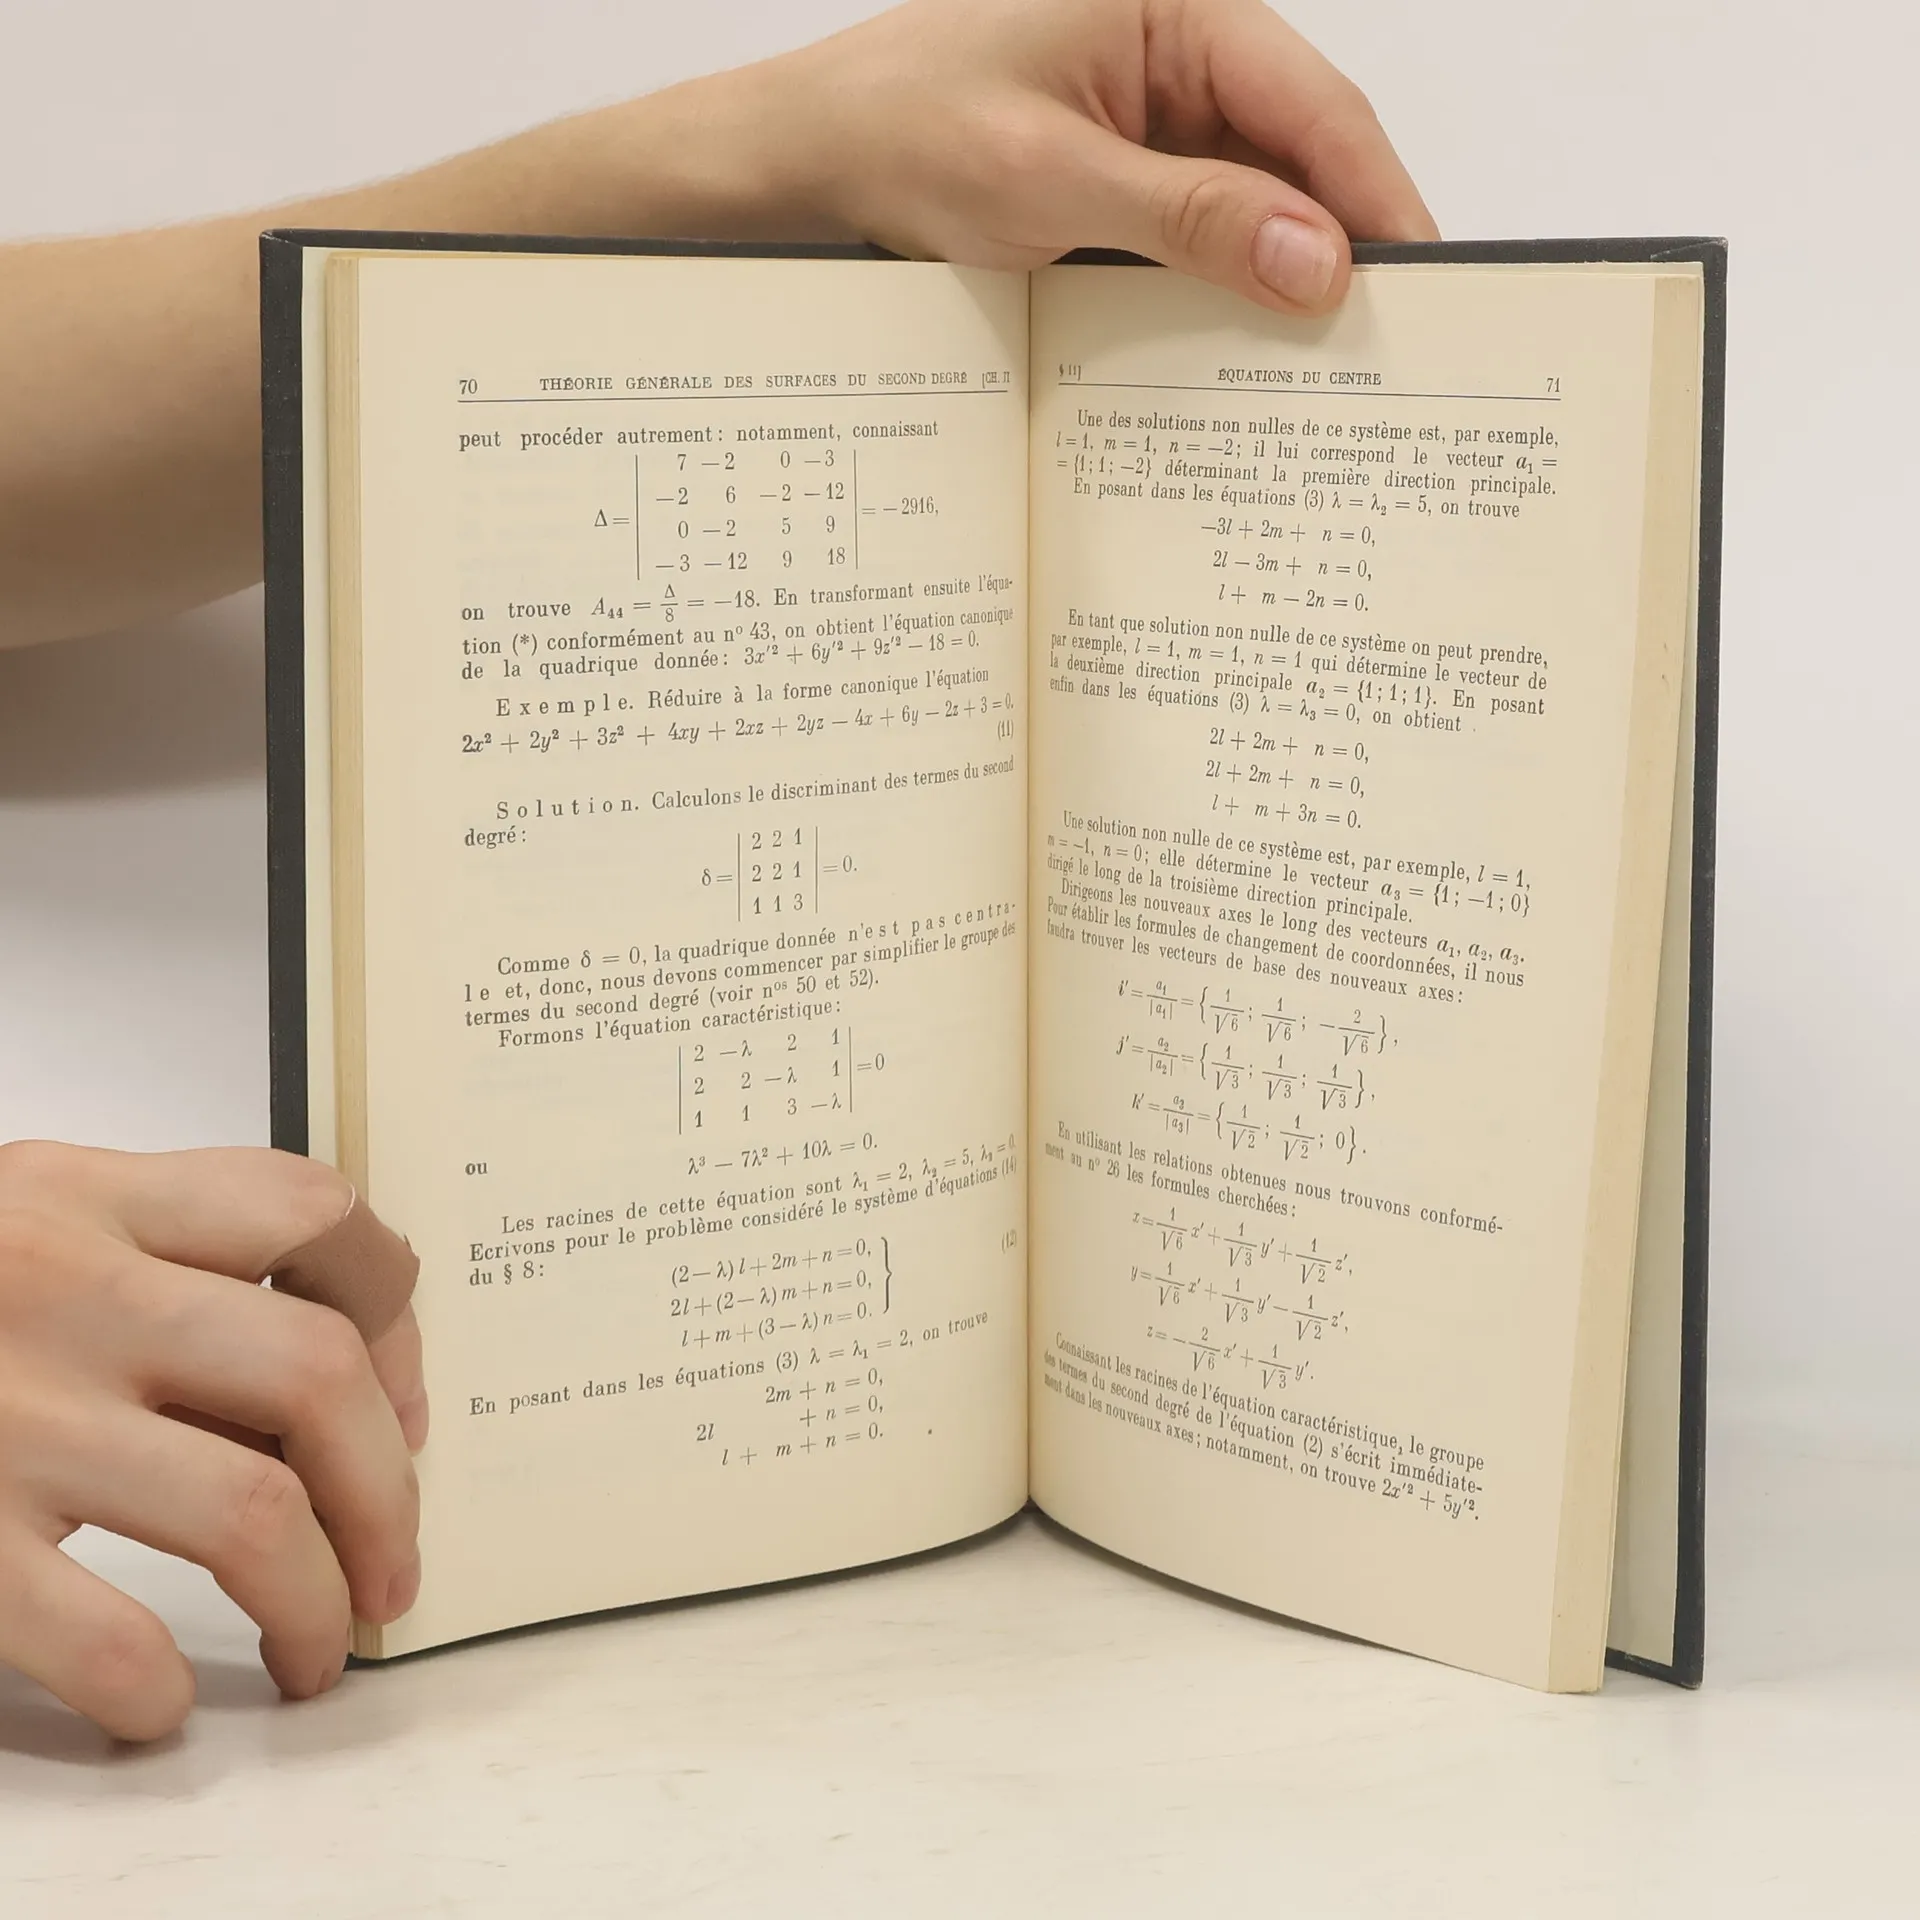 70 THÉORIE GÉNÉRALE DES SURFACES DU SECOND DEGRÉ [CH. II
peut procéder autrement : notamment, connaissant
7 − 2 0 − 3
− 2 6 − 2 − 12
Δ = = − 2916,
0 − 2 5 9
− 3 − 12 9 18
on trouve A₄₄ = Δ/8 = −18. En transformant ensuite l'équa-
tion (*) conformément au nº 43, on obtient l'équation canonique
de la quadrique donnée : 3x'² + 6y'² + 9z'² − 18 = 0.
Exemple. Réduire à la forme canonique l'équation
2x² + 2y² + 3z² + 4xy + 2xz + 2yz − 4x + 6y − 2z + 3 = 0.
(11)
Solution. Calculons le discriminant des termes du second
degré :
2 2 1
δ = 2 2 1 = 0.
1 1 3
Comme δ = 0, la quadrique donnée n'est pas centra-
le et, donc, nous devons commencer par simplifier le groupe des
termes du second degré (voir nᵒˢ 50 et 52).
Formons l'équation caractéristique :
2 − λ 2 1
2 2 − λ 1 = 0
1 1 3 − λ
ou λ³ − 7λ² + 10λ = 0.
Les racines de cette équation sont λ₁ = 2, λ₂ = 5, λ₃ = 0.
Ecrivons pour le problème considéré le système d'équations (14)
du § 8 :
(2 − λ) l + 2m + n = 0,
2l + (2 − λ) m + n = 0, (12)
l + m + (3 − λ) n = 0.
En posant dans les équations (3) λ = λ₁ = 2, on trouve
2m + n = 0,
2l + n = 0,
l + m + n = 0.
§ 11] ÉQUATIONS DU CENTRE 71
Une des solutions non nulles de ce système est, par exemple,
l = 1, m = 1, n = −2; il lui correspond le vecteur a₁ =
= {1; 1; −2} déterminant la première direction principale.
En posant dans les équations (3) λ = λ₂ = 5, on trouve
−3l + 2m + n = 0,
2l − 3m + n = 0,
l + m − 2n = 0.
En tant que solution non nulle de ce système on peut prendre,
par exemple, l = 1, m = 1, n = 1 qui détermine le vecteur de
la deuxième direction principale a₂ = {1; 1; 1}. En posant
enfin dans les équations (3) λ = λ₃ = 0, on obtient
2l + 2m + n = 0,
2l + 2m + n = 0,
l + m + 3n = 0.
Une solution non nulle de ce système est, par exemple, l = 1,
m = −1, n = 0; elle détermine le vecteur a₃ = {1; −1; 0}
dirigé le long de la troisième direction principale.
Dirigeons les nouveaux axes le long des vecteurs a₁, a₂, a₃.
Pour établir les formules de changement de coordonnées, il nous
faudra trouver les vecteurs de base des nouveaux axes :
i' = a₁/|a₁| = {1/√6; 1/√6; −2/√6},
j' = a₂/|a₂| = {1/√3; 1/√3; 1/√3},
k' = a₃/|a₃| = {1/√2; 1/√2; 0}.
En utilisant les relations obtenues nous trouvons conformé-
ment au nº 26 les formules cherchées :
x = 1/√6 x' + 1/√3 y' + 1/√2 z',
y = 1/√6 x' + 1/√3 y' − 1/√2 z',
z = − 2/√6 x' + 1/√3 y'.
Connaissant les racines de l'équation caractéristique, le groupe
des termes du second degré de l'équation (2) s'écrit immédiate-
ment dans les nouveaux axes ; notamment, on trouve 2x'² + 5y'².